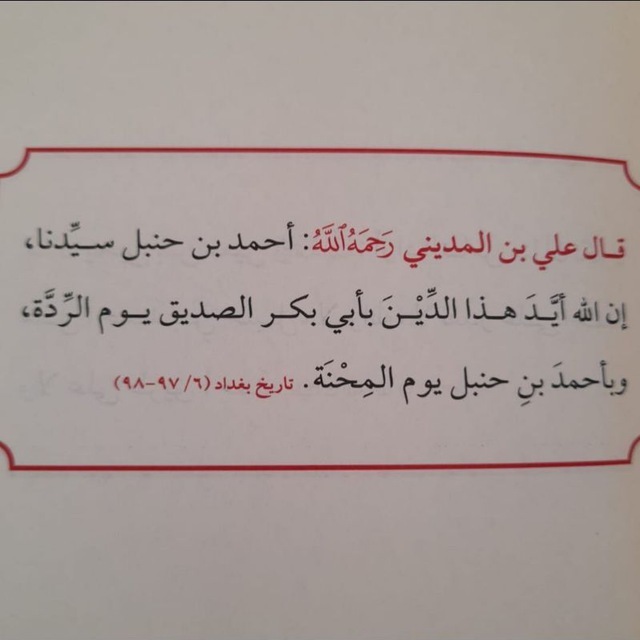 قال علي بن المديني رَحِمَهُ ٱللَّهُ: أحمد بن حنبل سيِّدنا،
إن الله أيَّدَ هذا الدِّيْنَ بأبي بكر الصديق يوم الرِّدَّة،
وبأحمدَ بنِ حنبل يوم المِحْنَة. تاريخ بغداد (٦/ ٩٧-٩٨)